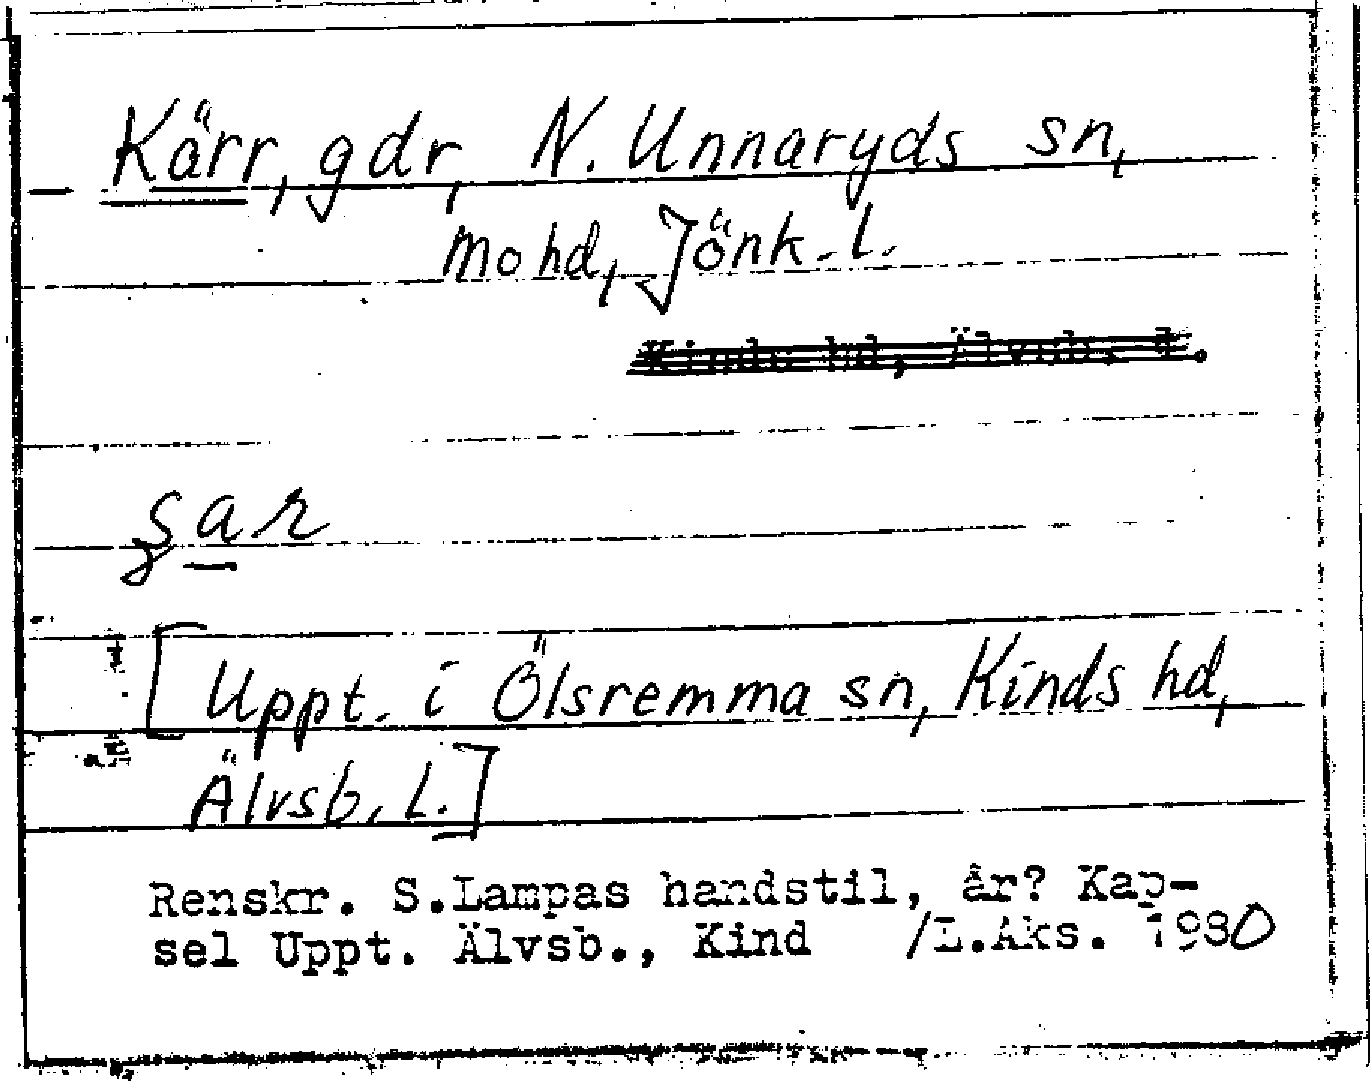 Kärr, gdr, N. Unnaryds sn,
Mo hd, Jönk. l.
Kinds hd, Älvsb. l.
[Uppt. i Ölsremma sn, Kinds hd,
Älvsb. l.]
Renskr. S.Lampas handstil, år? Kap-
sel Uppt. Älvsb., Kind /L.Aks. 1980